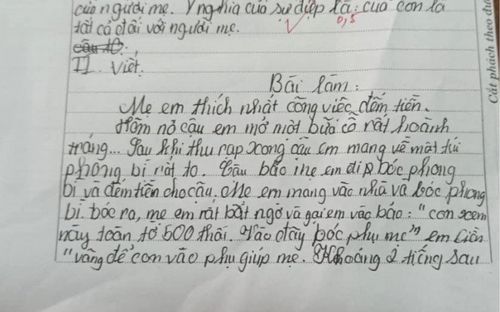 của người mẹ. Ý nghĩa của sự đáp là: của con là
tất cả đối với người mẹ.
0,5
câu 10.
II. Viết.
Bài làm:
Mẹ em thích nhất công việc đếm tiền.
Hôm nọ cậu em mở một bữa cỗ rất hoành
tráng... Sau khi thu rạp xong cậu em mang về một túi
phong bì rất to. Cậu bảo mẹ em đi bóc phong
bì và đếm tiền cho cậu. Mẹ em mang vào nhà và bóc phong
bì. bóc ra, mẹ em rất bất ngờ và gọi em vào bảo: "con xem
này toàn tờ 500 thôi. Vào đây bóc phụ mẹ" em liền
"vâng để con vào phụ giúp mẹ. Khoảng 2 tiếng sau
Cắt phách theo đư